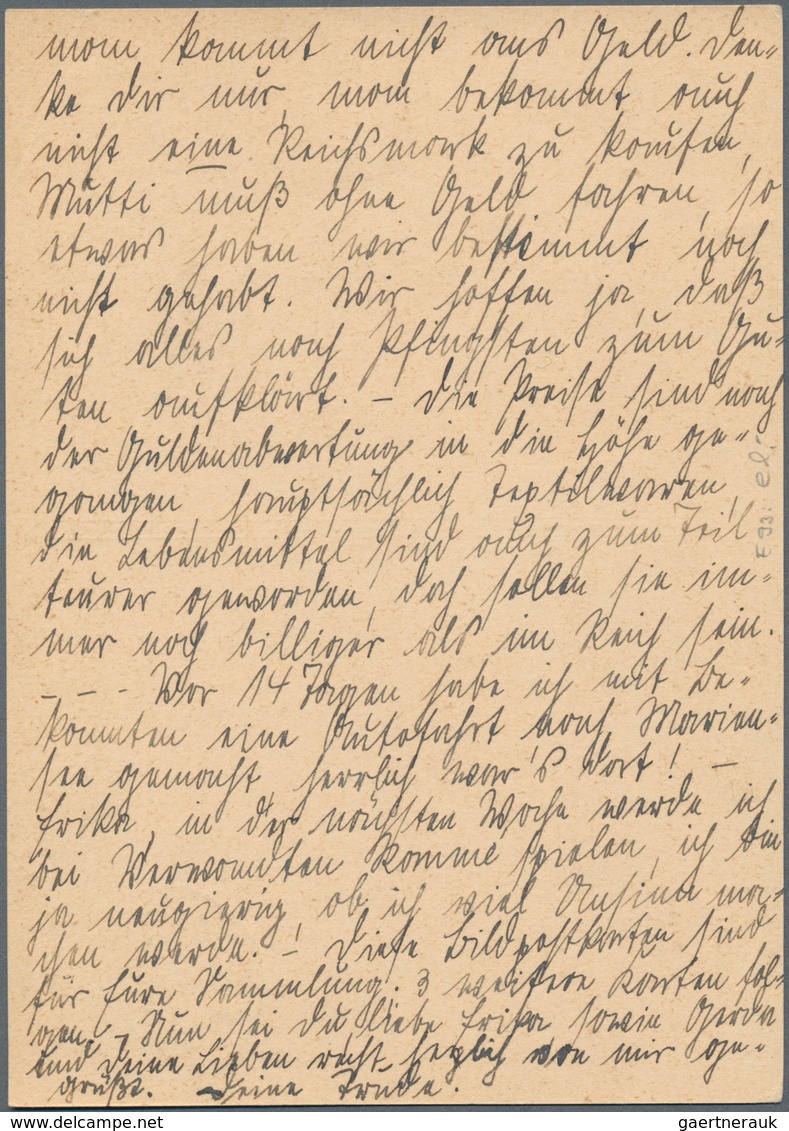 man kommt nicht ans Geld. Den-
ke dir nur, man bekommt auch
nicht eine Reichsmark zu kaufen,
Mutti muß ohne Geld fahren, so
etwas haben wir bestimmt noch
nicht gehabt. Wir hoffen ja, daß
sich alles nach Pfingsten zum Gu-
ten aufklärt. – Die Preise sind nach
der Guldenabwertung in die Höhe ge-
gangen, hauptsächlich Textilwaren,
die Lebensmittel sind auch zum Teil
teurer geworden, doch sollen sie im-
mer noch billiger als im Reich sein.
– – – Vor 14 Tagen habe ich mit Be-
kannten eine Autofahrt nach Marien-
see gemacht, herrlich war's dort! –
Erika, in der nächsten Woche werde ich
bei Verwandten spielen, ich bin
ja neugierig, ob ich viel Unsinn ma-
chen werde. – Diese Bildpostkarten sind
für Eure Sammlung. 3 weitere Karten fol-
gen. – Nun sei Du, liebe Erika sowie Gerda
und Deine Lieben recht herzlich von mir ge-
grüßt. Deine Trude.
gaertnerauk